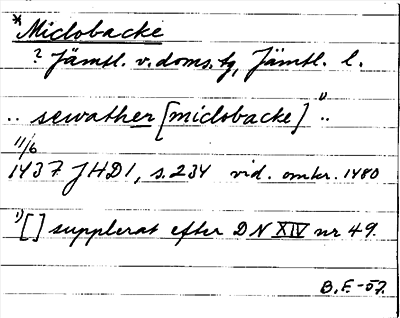 *Miclobacke
? Jämtl. v. doms. tg, Jämtl. l.
.. sewather [miclobacke] ¹⁾ ..
11/6
1437 JHD 1, s. 234 vid. omkr. 1480
¹⁾[ ] supplerat efter DN XIV nr 49.
B.E-57.